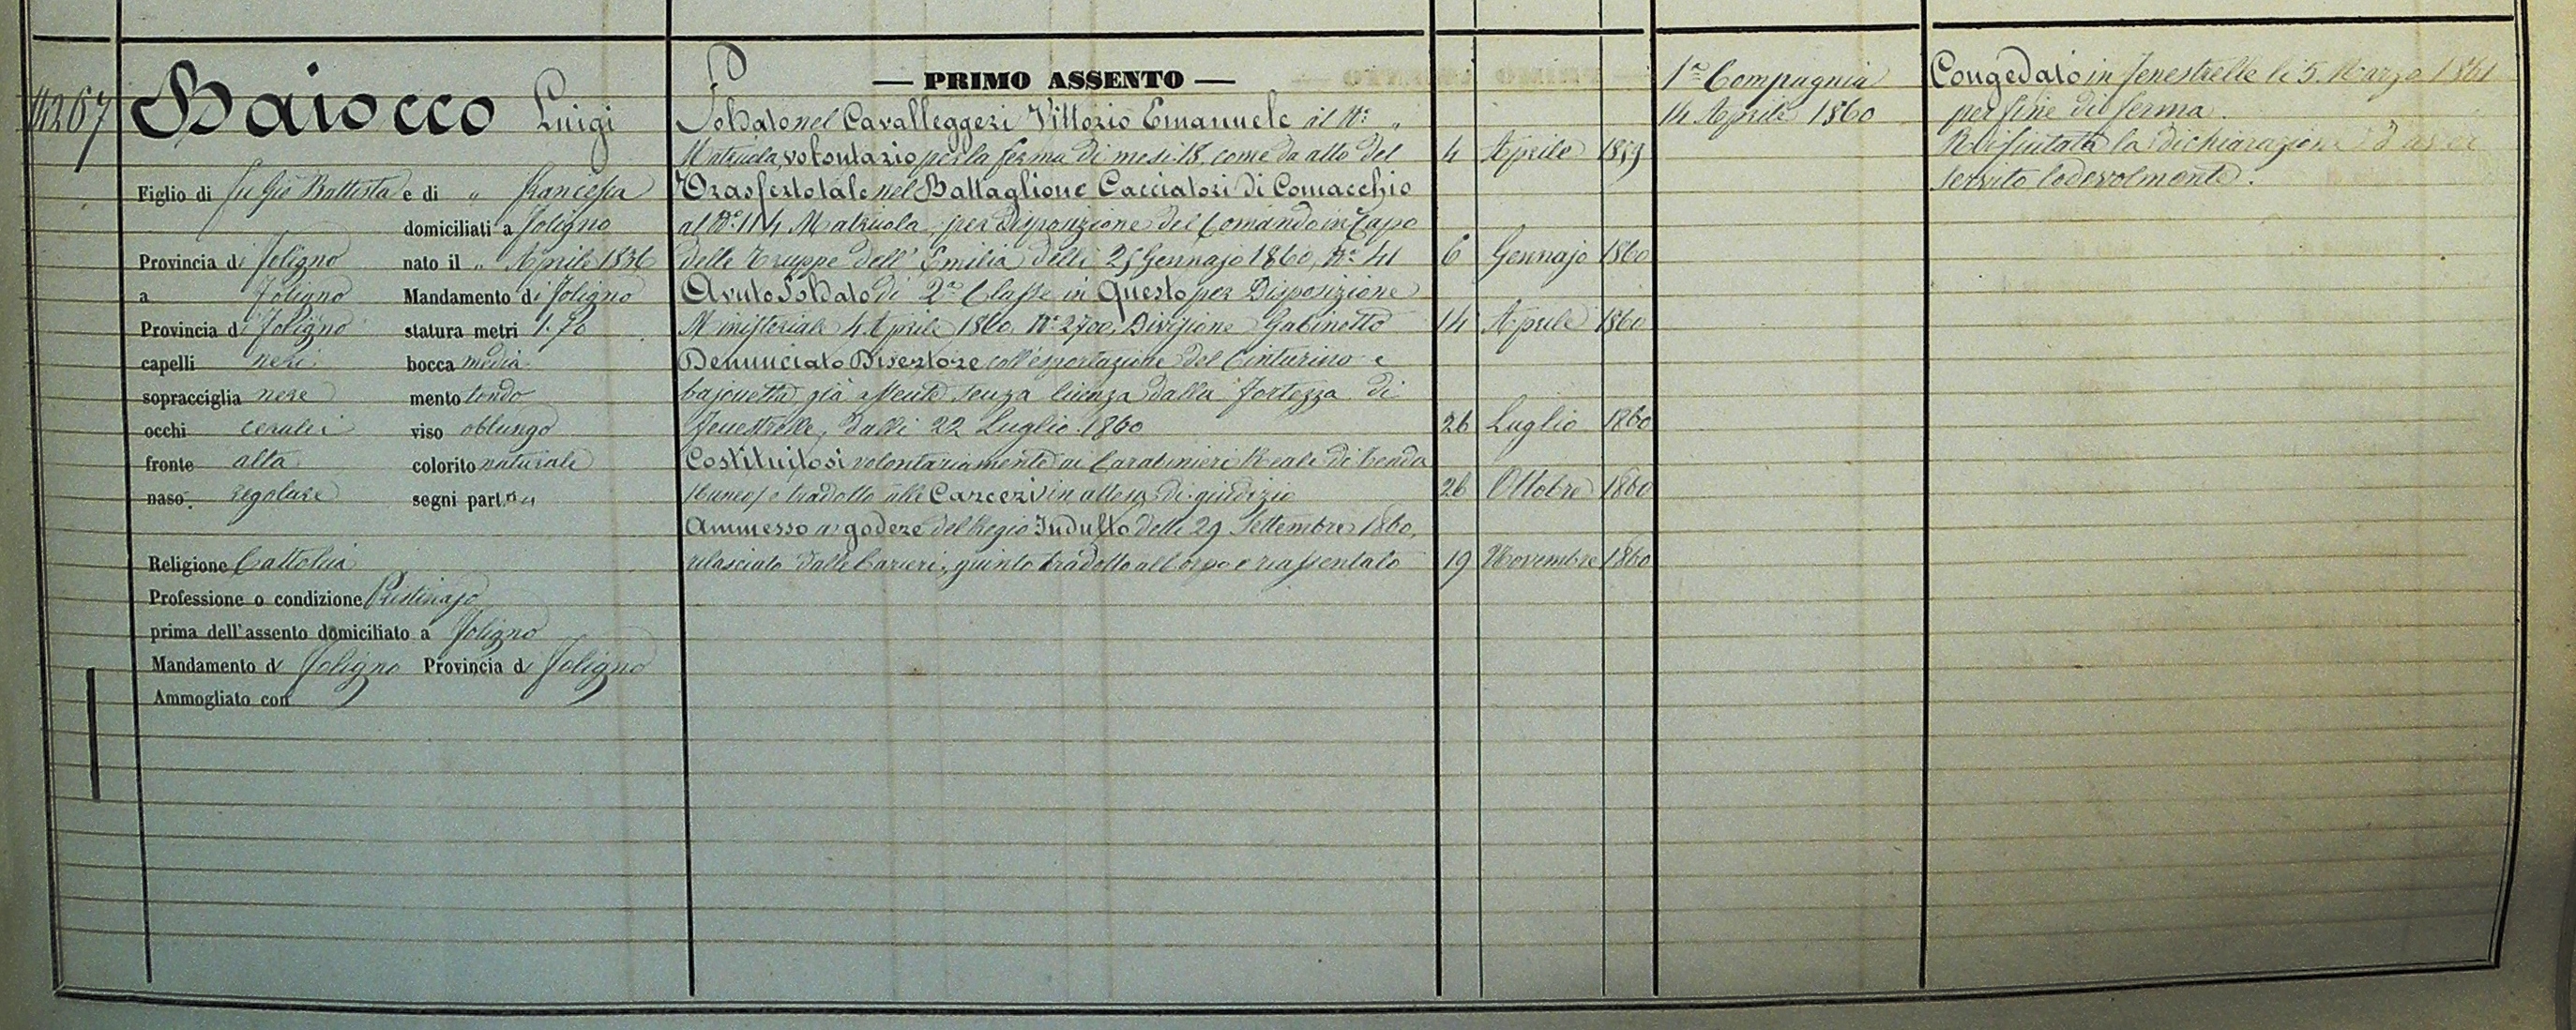 11267
Baiocco Luigi
Figlio di fu Gio Battista e di " Francesca
domiciliati a Foligno
Provincia di Foligno nato il " Aprile 1836
a Foligno Mandamento di Foligno
Provincia di Foligno statura metri 1.70
capelli neri bocca media
sopracciglia nere mento tondo
occhi cerulei viso oblungo
fronte alta colorito naturale
naso regolare segni part.ri "
Religione Cattolica
Professione o condizione Pristinajo
prima dell'assento domiciliato a Foligno
Mandamento di Foligno Provincia di Foligno
Ammogliato con
— PRIMO ASSENTO —
Soldato nel Cavalleggeri Vittorio Emanuele al N.o "
Matricola, volontario per la ferma di mesi 18, come da atto del 4 Aprile 1859
Trasferto tale nel Battaglione Cacciatori di Comacchio
al N.o 114 Matricola, per Disposizione del Comando in Capo
delle Truppe dell'Emilia delli 25 Gennajo 1860, N.o 41 6 Gennajo 1860
Avuto Soldato di 2.a Classe in Questo per Disposizione
Ministeriale 4 Aprile 1860 N.o 2700, Divisione Gabinetto 14 Aprile 1860
Denunciato Disertore coll'esportazione del Cinturino e
bajonetta, già assente senza licenza dalla Fortezza di
Fenestrelle, dalli 22 Luglio 1860 26 Luglio 1860
Costituitosi volontariamente ai Carabinieri Reali di Tenda
(Cuneo) e tradotto alle Carceri in attesa di giudizio 26 Ottobre 1860
Ammesso a godere del Regio Indulto delli 29 Settembre 1860,
rilasciato dalle Carceri, quindi tradotto al Corpo e riassentato 19 Novembre 1860
1.a Compagnia
14 Aprile 1860
Congedato in Fenestrelle li 5. Marzo 1861
per fine di ferma.
Rifiutata la dichiarazione d'aver
servito lodevolmente.